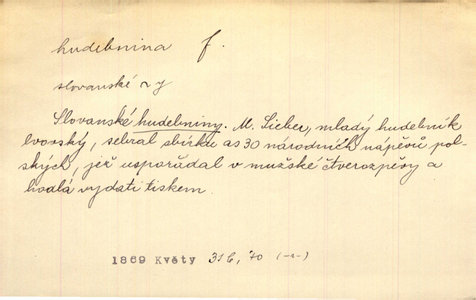 hudebnina f.
slovanské ~ y
Slovanské hudebniny. M. Sieber, mladý hudebník
lvovský, sebral sbírku as 30 národních nápěvů pol-
ských, jež uspořádal v mužské čtverozpěvy a
hodlá vydati tiskem.
1869 Květy 316, 70 (-r-)